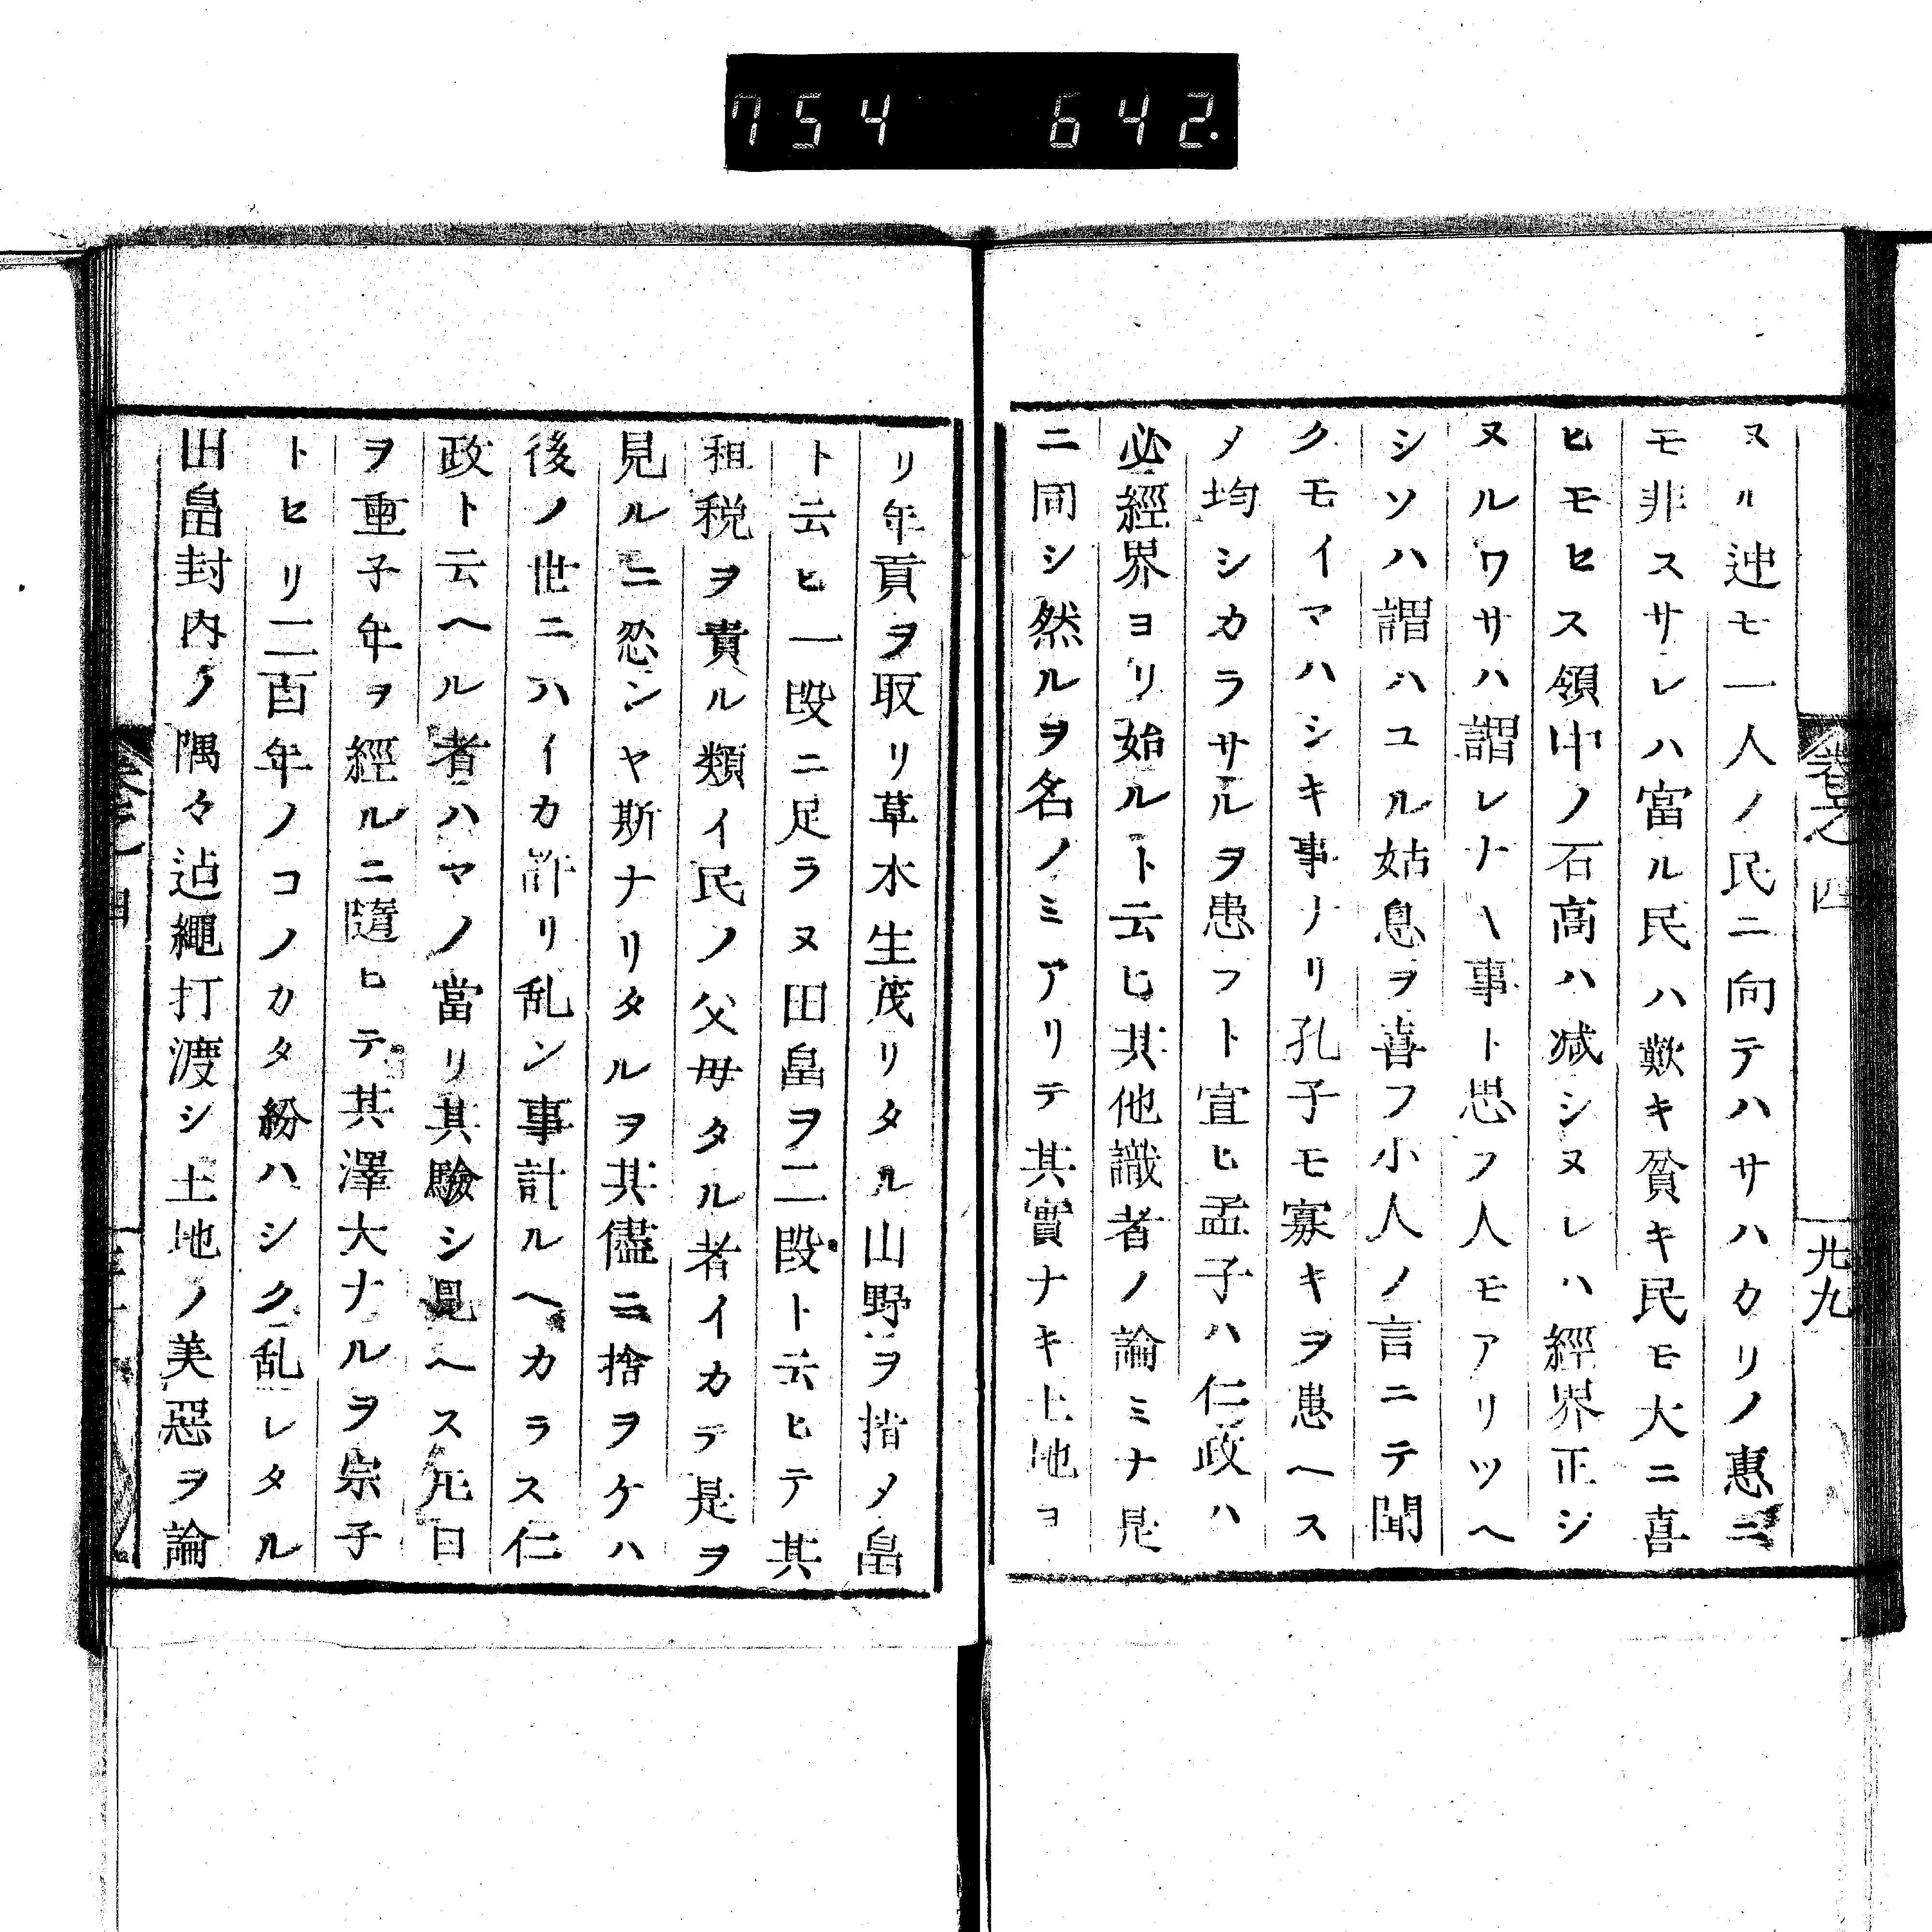 754 642.
卷之四
廿九
ヌル迚モ一人ノ民ニ向テハサハカリノ惠ニ
モ非スサレハ富ル民ハ歎キ貧キ民モ大ニ喜
ヒモヒス領中ノ石高ハ减シヌレハ經界正シ
ヌルワサハ謂レナヽ事ト思フ人モアリツヘ
シソハ謂ハユル姑息ヲ喜フ小人ノ言ニテ聞
クモイマハシキ事ナリ孔子モ寡キヲ患ヘス
ノ均シカラサルヲ患フト宣ヒ孟子ハ仁政ハ
必經界ヨリ始ルト云ヒ其他識者ノ論ミナ是
ニ同シ然ルヲ名ノミアリテ其實ナキ土地ヨ
リ年貢ヲ取リ草木生茂リタル山野ヲ指メ畠
ト云ヒ一段ニ足ラヌ田畠ヲ二段ト云ヒテ其
租税ヲ責ル類イ民ノ父母タル者イカテ是ヲ
見ルニ忍ンヤ斯ナリタルヲ其儘ニ捨ヲケハ
後ノ世ニハイカ許リ乱ン事計ルヘカラス仁
政ト云ヘル者ハマノ當リ其驗シ見ヘス元日
ヲ重子年ヲ經ルニ隨ヒテ其澤大ナルヲ宗子
トヒリ二百年ノコノカタ紛ハシク乱レタル
田畠封内ノ隅々迠繩打渡シ土地ノ美惡ヲ論